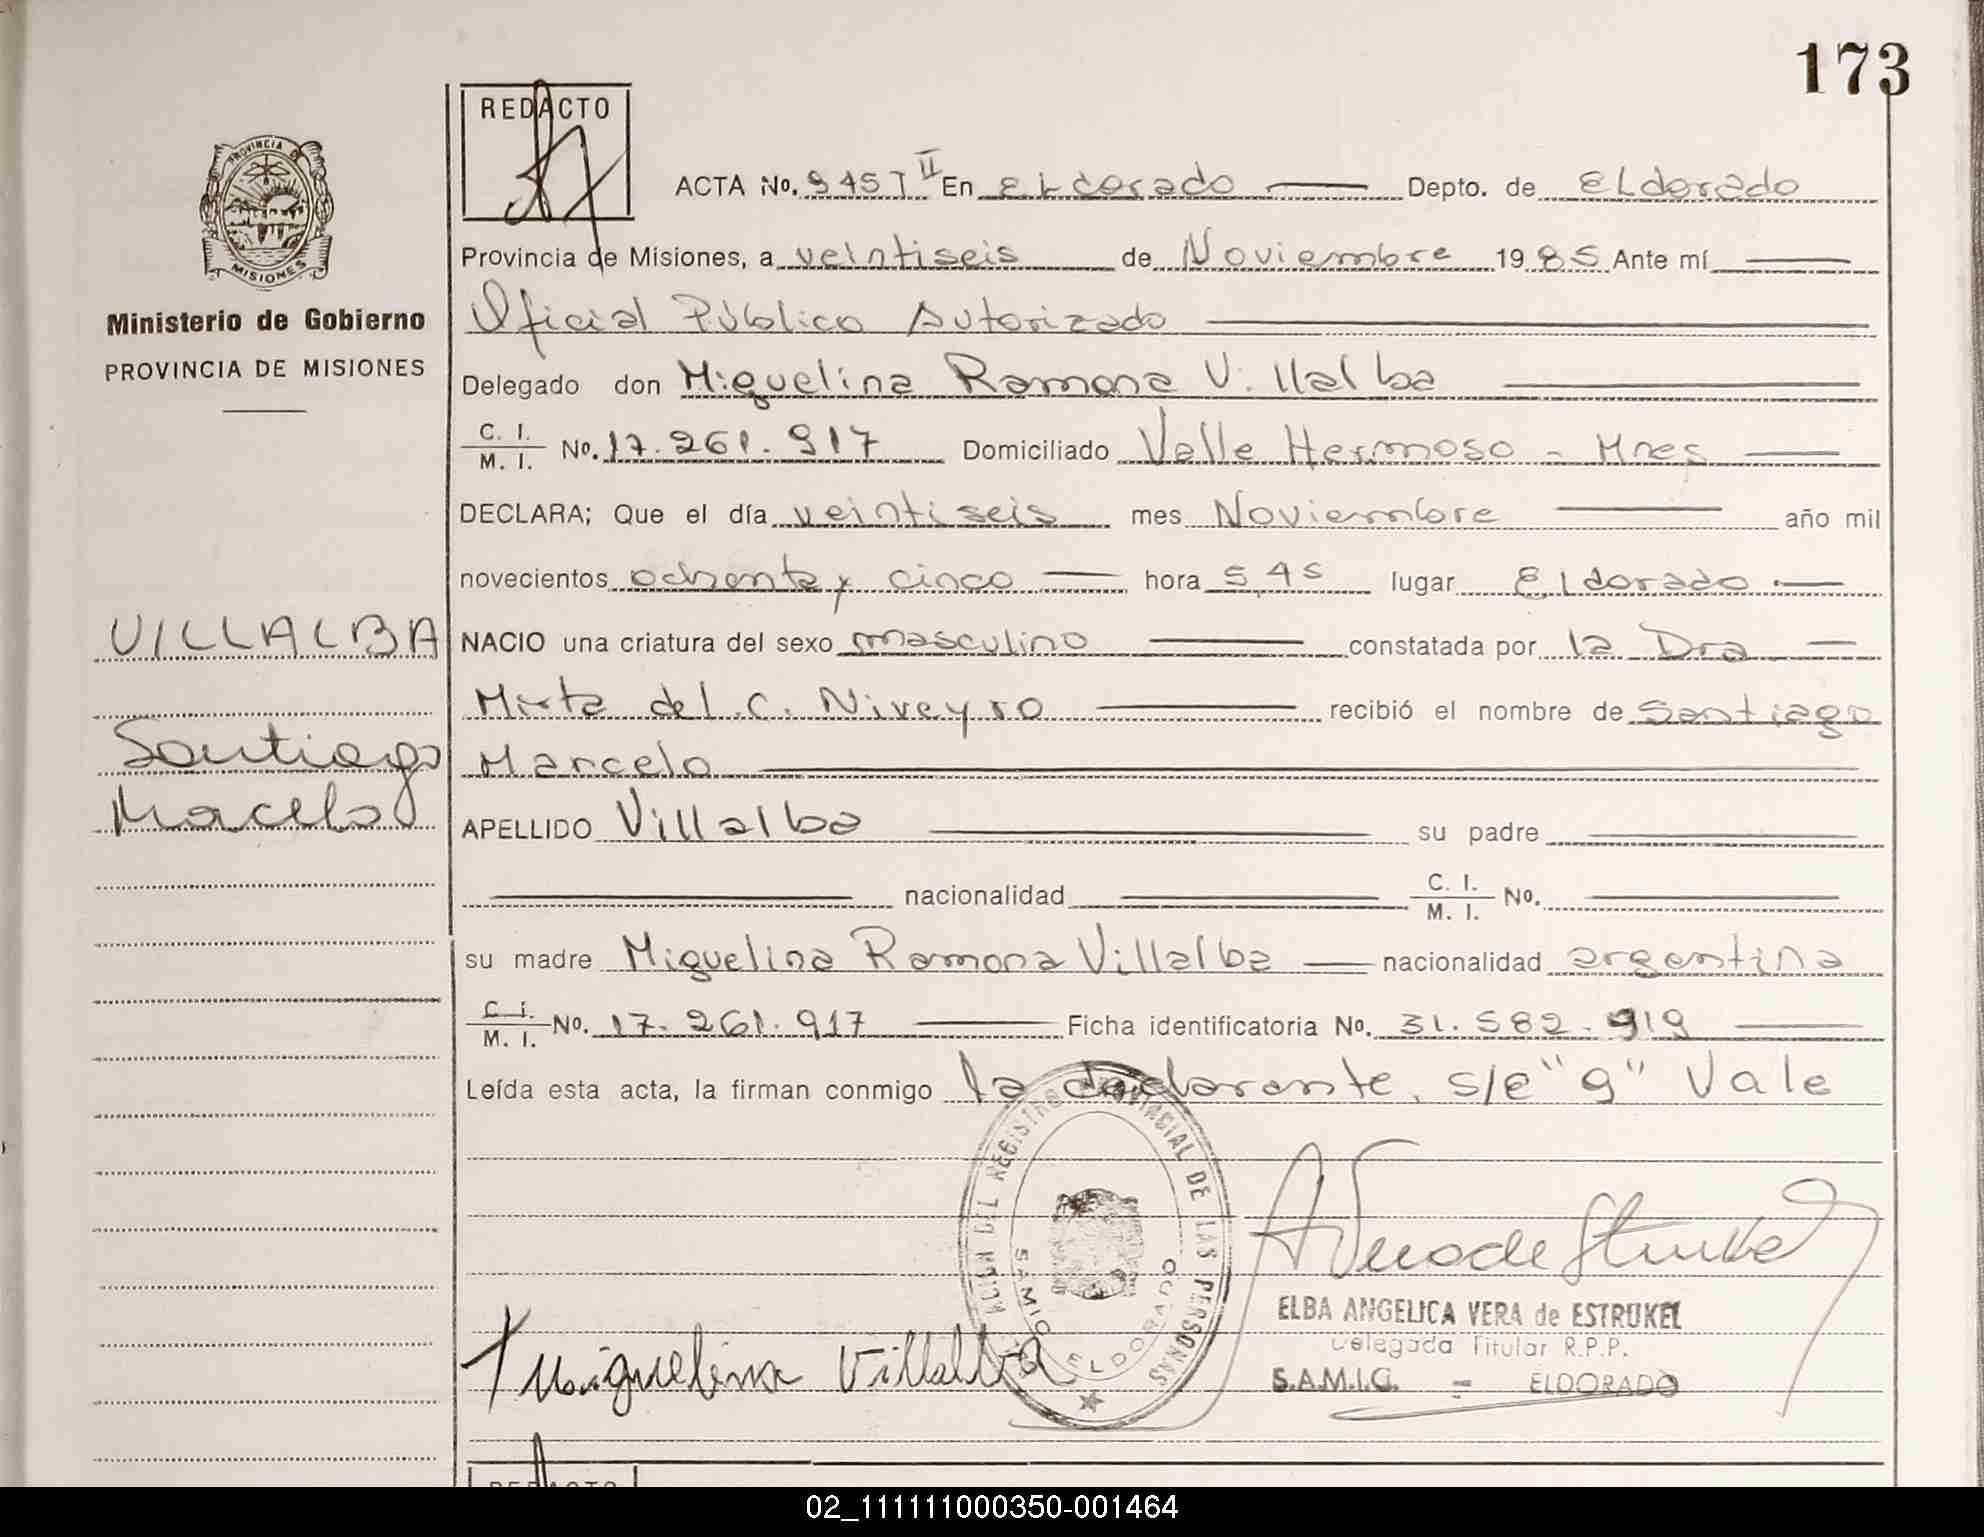 173
REDACTO
PROVINCIA DE
MISIONES
Ministerio de Gobierno
PROVINCIA DE MISIONES
ACTA No. 9457 II En ELdorado Depto. de ELdorado
Provincia de Misiones, a veintiseis de Noviembre 1985 Ante mí
Oficial Público Autorizado
Delegado don Miguelina Ramona Villalba
C. I. / M. I. No. 17.261.917 Domiciliado Valle Hermoso - Mnes
DECLARA; Que el día veintiseis mes Noviembre año mil
novecientos ochenta y cinco hora 5,45 lugar ELdorado
VILLALBA
NACIO una criatura del sexo masculino constatada por la Dra
Mirta del.C. Niveyro recibió el nombre de Santiago
Santiago
Marcelo
Macelo
APELLIDO Villalba su padre
nacionalidad C. I. / M. I. No.
su madre Miguelina Ramona Villalba nacionalidad argentina
C. I. / M. I. No. 17.261.917 Ficha identificatoria No. 31.582.919
Leída esta acta, la firman conmigo la declarante. s/e "9" Vale
DEL REGISTRO PROVINCIAL DE LAS PERSONAS
SAMIC ELDORADO
ELBA ANGELICA VERA de ESTRUKEL
Delegada Titular R.P.P.
S.A.M.I.C. - ELDORADO
Miguelina Villalba
REDACTO
02_111111000350-001464